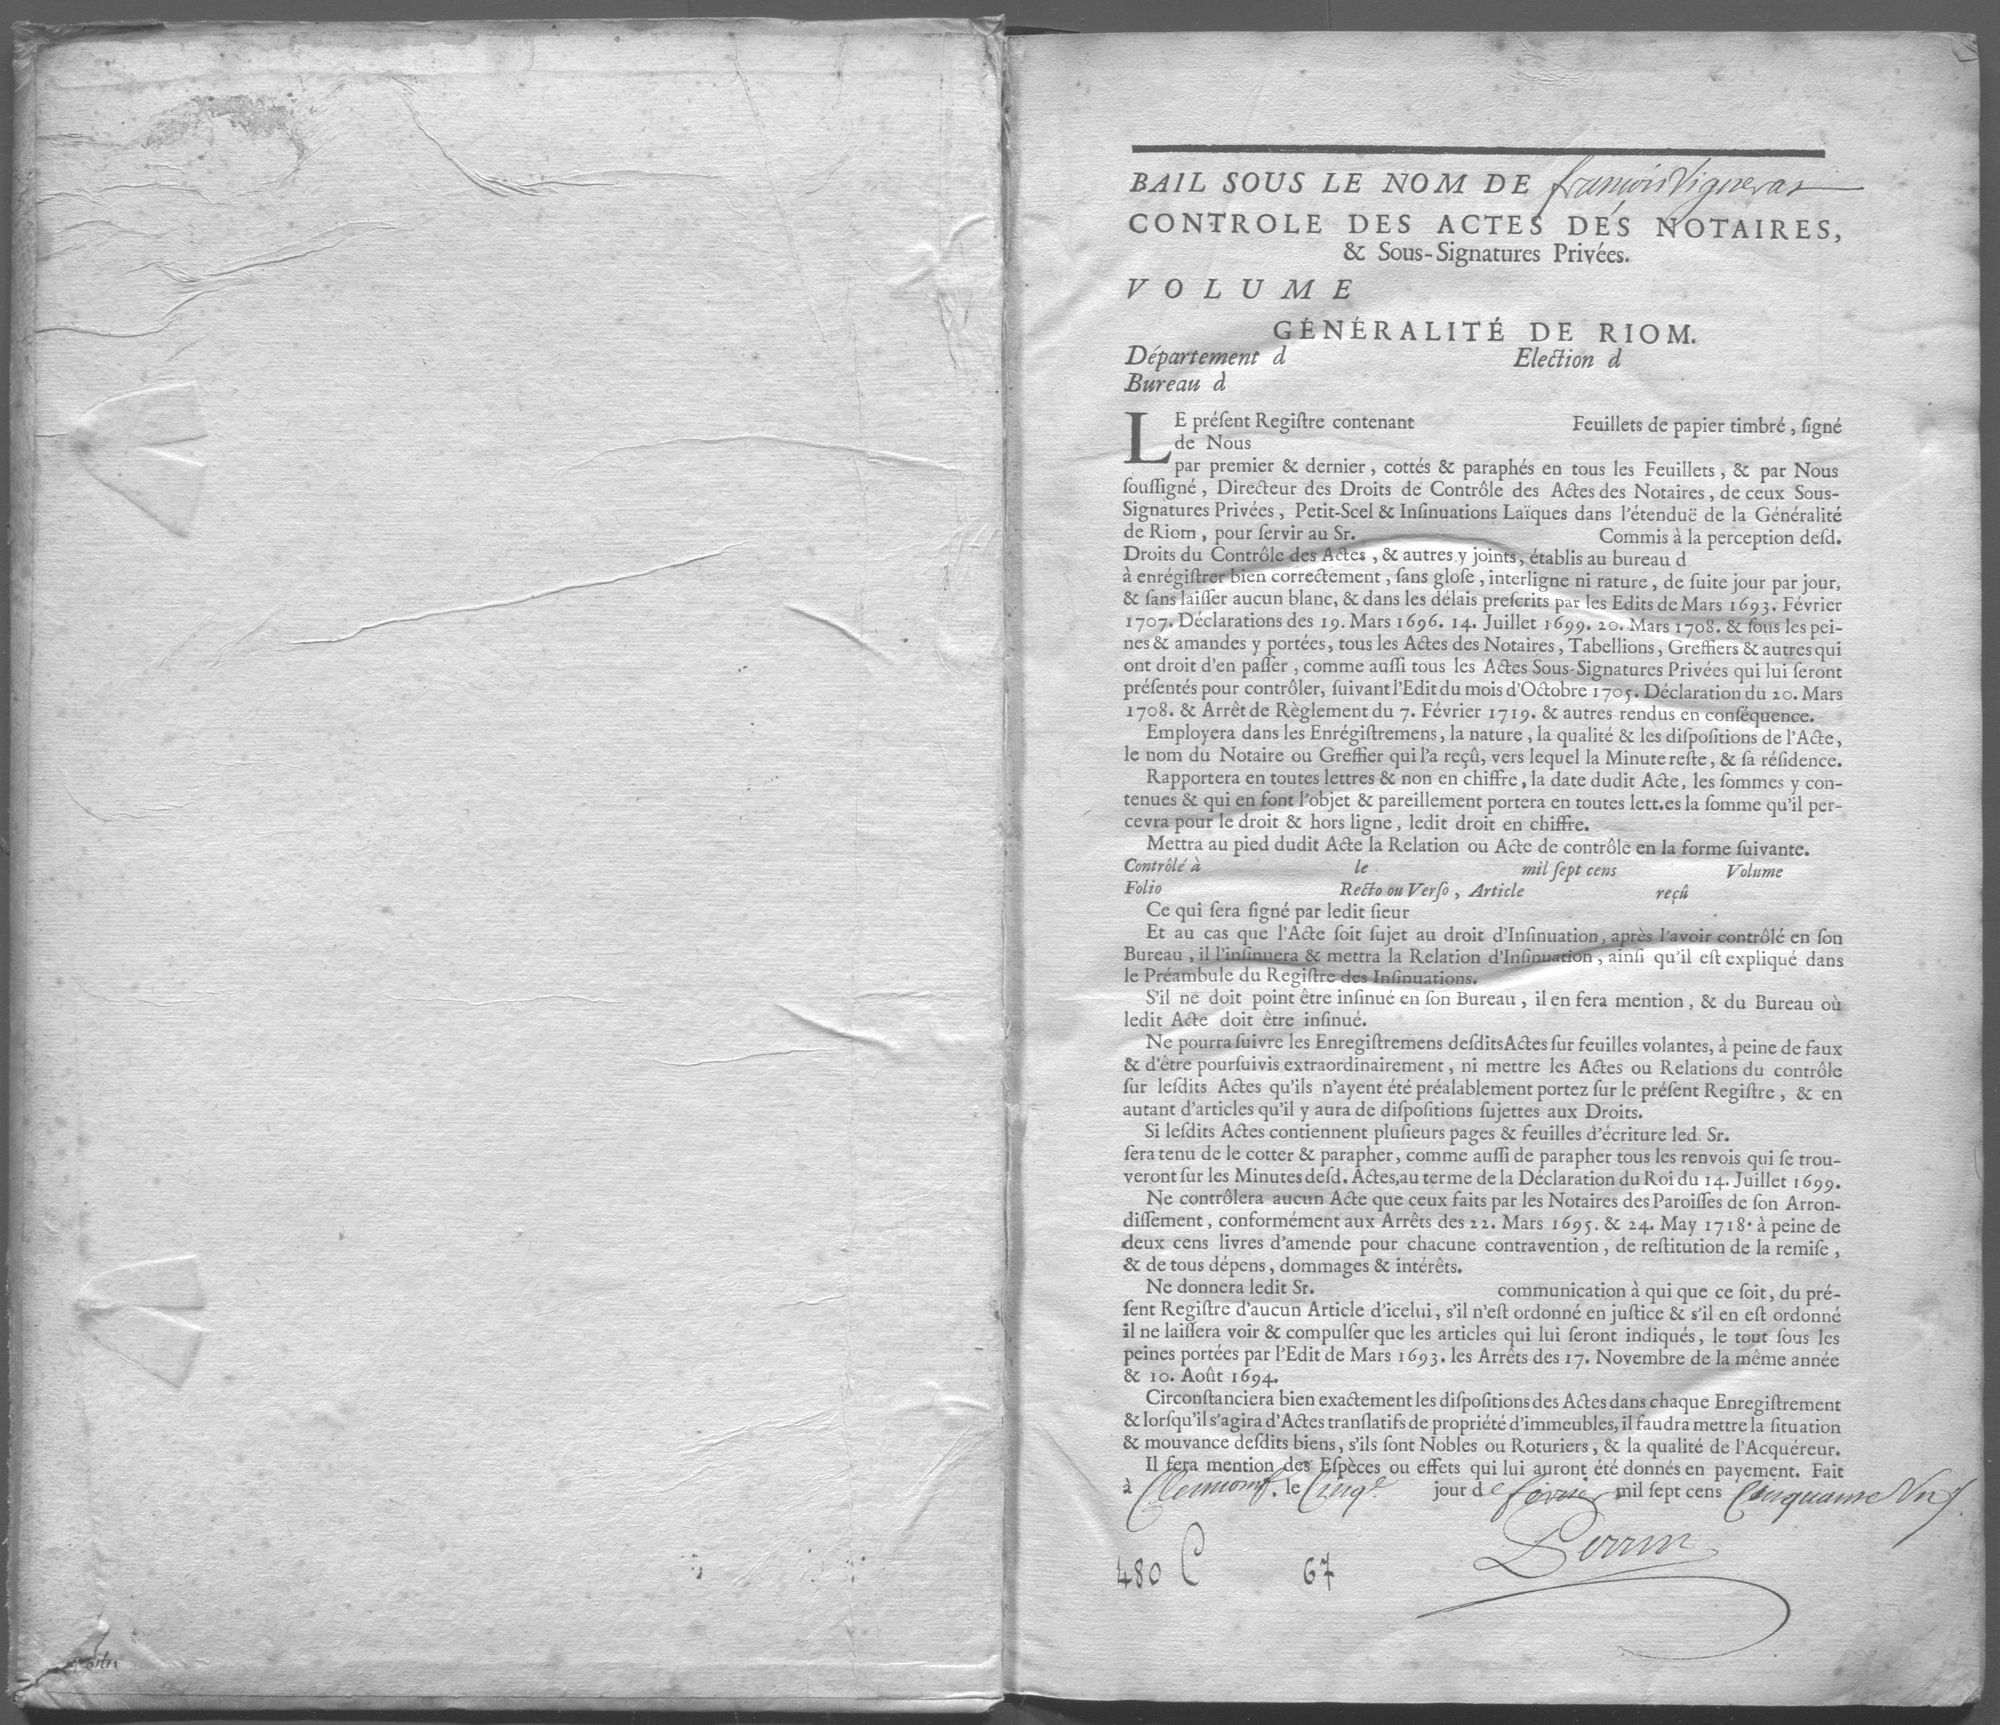 BAIL SOUS LE NOM DE françois Vigneras
CONTROLE DES ACTES DES NOTAIRES,
& Sous-Signatures Privées.
VOLUME
GÉNÉRALITÉ DE RIOM.
Département d Election d
Bureau d
LE préſent Regiſtre contenant Feuillets de papier timbré, ſigné
de Nous
par premier & dernier, cottés & paraphés en tous les Feuillets, & par Nous
ſouſſigné, Directeur des Droits de Contrôle des Actes des Notaires, de ceux Sous-
Signatures Privées, Petit-Scel & Inſinuations Laïques dans l'étenduë de la Généralité
de Riom, pour ſervir au Sr. Commis à la perception deſd.
Droits du Contrôle des Actes, & autres y joints, établis au bureau d
à enrégiſtrer bien correctement, ſans gloſe, interligne ni rature, de ſuite jour par jour,
& ſans laiſſer aucun blanc, & dans les délais preſcrits par les Edits de Mars 1693. Février
1707. Déclarations des 19. Mars 1696. 14. Juillet 1699. 20. Mars 1708. & ſous les pei-
nes & amandes y portées, tous les Actes des Notaires, Tabellions, Greffiers & autres qui
ont droit d'en paſſer, comme auſſi tous les Actes Sous-Signatures Privées qui lui ſeront
préſentés pour contrôler, ſuivant l'Edit du mois d'Octobre 1705. Déclaration du 20. Mars
1708. & Arrêt de Règlement du 7. Février 1719. & autres rendus en conſéquence.
Employera dans les Enrégiſtremens, la nature, la qualité & les diſpoſitions de l'Acte,
le nom du Notaire ou Greffier qui l'a reçû, vers lequel la Minute reſte, & ſa réſidence.
Rapportera en toutes lettres & non en chiffre, la date dudit Acte, les ſommes y con-
tenues & qui en font l'objet & pareillement portera en toutes lett.es la ſomme qu'il per-
cevra pour le droit & hors ligne, ledit droit en chiffre.
Mettra au pied dudit Acte la Relation ou Acte de contrôle en la forme ſuivante.
Contrôlé à le mil ſept cens Volume
Folio Recto ou Verſo, Article reçû
Ce qui ſera ſigné par ledit ſieur
Et au cas que l'Acte ſoit ſujet au droit d'Inſinuation, après l'avoir contrôlé en ſon
Bureau, il l'inſinuera & mettra la Relation d'Inſinuation, ainſi qu'il eſt expliqué dans
le Préambule du Regiſtre des Inſinuations.
S'il ne doit point être inſinué en ſon Bureau, il en fera mention, & du Bureau où
ledit Acte doit être inſinué.
Ne pourra ſuivre les Enregiſtremens deſdits Actes ſur feuilles volantes, à peine de faux
& d'être pourſuivis extraordinairement, ni mettre les Actes ou Relations du contrôle
ſur leſdits Actes qu'ils n'ayent été préalablement portez ſur le préſent Regiſtre, & en
autant d'articles qu'il y aura de diſpoſitions ſujettes aux Droits.
Si leſdits Actes contiennent pluſieurs pages & feuilles d'écriture led. Sr.
ſera tenu de le cotter & parapher, comme auſſi de parapher tous les renvois qui ſe trou-
veront ſur les Minutes deſd. Actes, au terme de la Déclaration du Roi du 14. Juillet 1699.
Ne contrôlera aucun Acte que ceux faits par les Notaires des Paroiſſes de ſon Arron-
diſſement, conformément aux Arrêts des 22. Mars 1695. & 24. May 1718. à peine de
deux cens livres d'amende pour chacune contravention, de reſtitution de la remiſe,
& de tous dépens, dommages & intérêts.
Ne donnera ledit Sr. communication à qui que ce ſoit, du pré-
ſent Regiſtre d'aucun Article d'icelui, s'il n'eſt ordonné en juſtice & s'il en eſt ordonné
il ne laiſſera voir & compulſer que les articles qui lui ſeront indiqués, le tout ſous les
peines portées par l'Edit de Mars 1693. les Arrêts des 17. Novembre de la même année
& 10. Août 1694.
Circonſtanciera bien exactement les diſpoſitions des Actes dans chaque Enregiſtrement
& lorſqu'il s'agira d'Actes tranſlatifs de propriété d'immeubles, il faudra mettre la ſituation
& mouvance deſdits biens, s'ils ſont Nobles ou Roturiers, & la qualité de l'Acquéreur.
Il ſera mention des Eſpèces ou effets qui lui auront été donnés en payement. Fait
à Clermont. le Cinqe jour de fevrier mil ſept cens Cinquante Un
Perrin
480 C 67